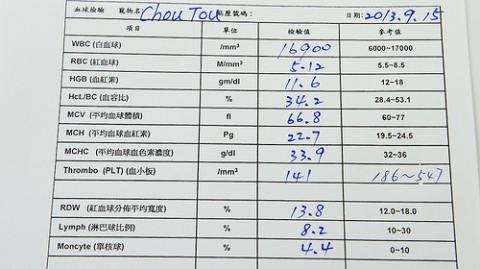 血球檢驗 寵物名 Chou Tou 病歷號碼： 日期:2013.9.15
項目 單位 檢驗值 參考值
WBC (白血球) /mm³ 16900 6000~17000
RBC (紅血球) M/mm³ 5.12 5.5~8.5
HGB (血紅素) gm/dl 11.6 12~18
Hct./BC (血容比) % 34.2 28.4~53.1
MCV (平均血球體積) fl 66.8 60~77
MCH (平均血球血紅素) Pg 22.7 19.5~24.5
MCHC (平均血球血色素濃度) g/dl 33.9 32~36
Thrombo (PLT) (血小板) /mm³ 141 186~547
RDW (紅血球分佈平均寬度) % 13.8 12.0~18.0
Lymph (淋巴球比例) % 8.2 10~30
Moncyte (單核球) % 4.4 0~10